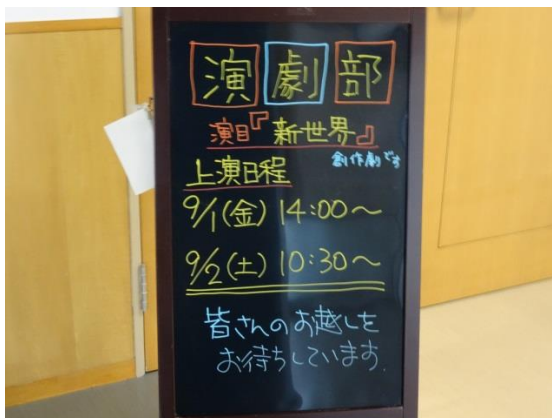 演劇部
演目『新世界』
創作劇です
上演日程
9/1(金) 14:00～
9/2(土) 10:30～
皆さんのお越しを
お待ちしています.